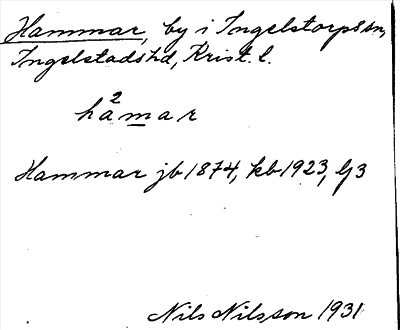 Hammar, by i Ingelstorps sn,
Ingelstads hd, Krist. l.
ha²mar
Hammar jb 1874, kb 1923, G3
Nils Nilsson 1931